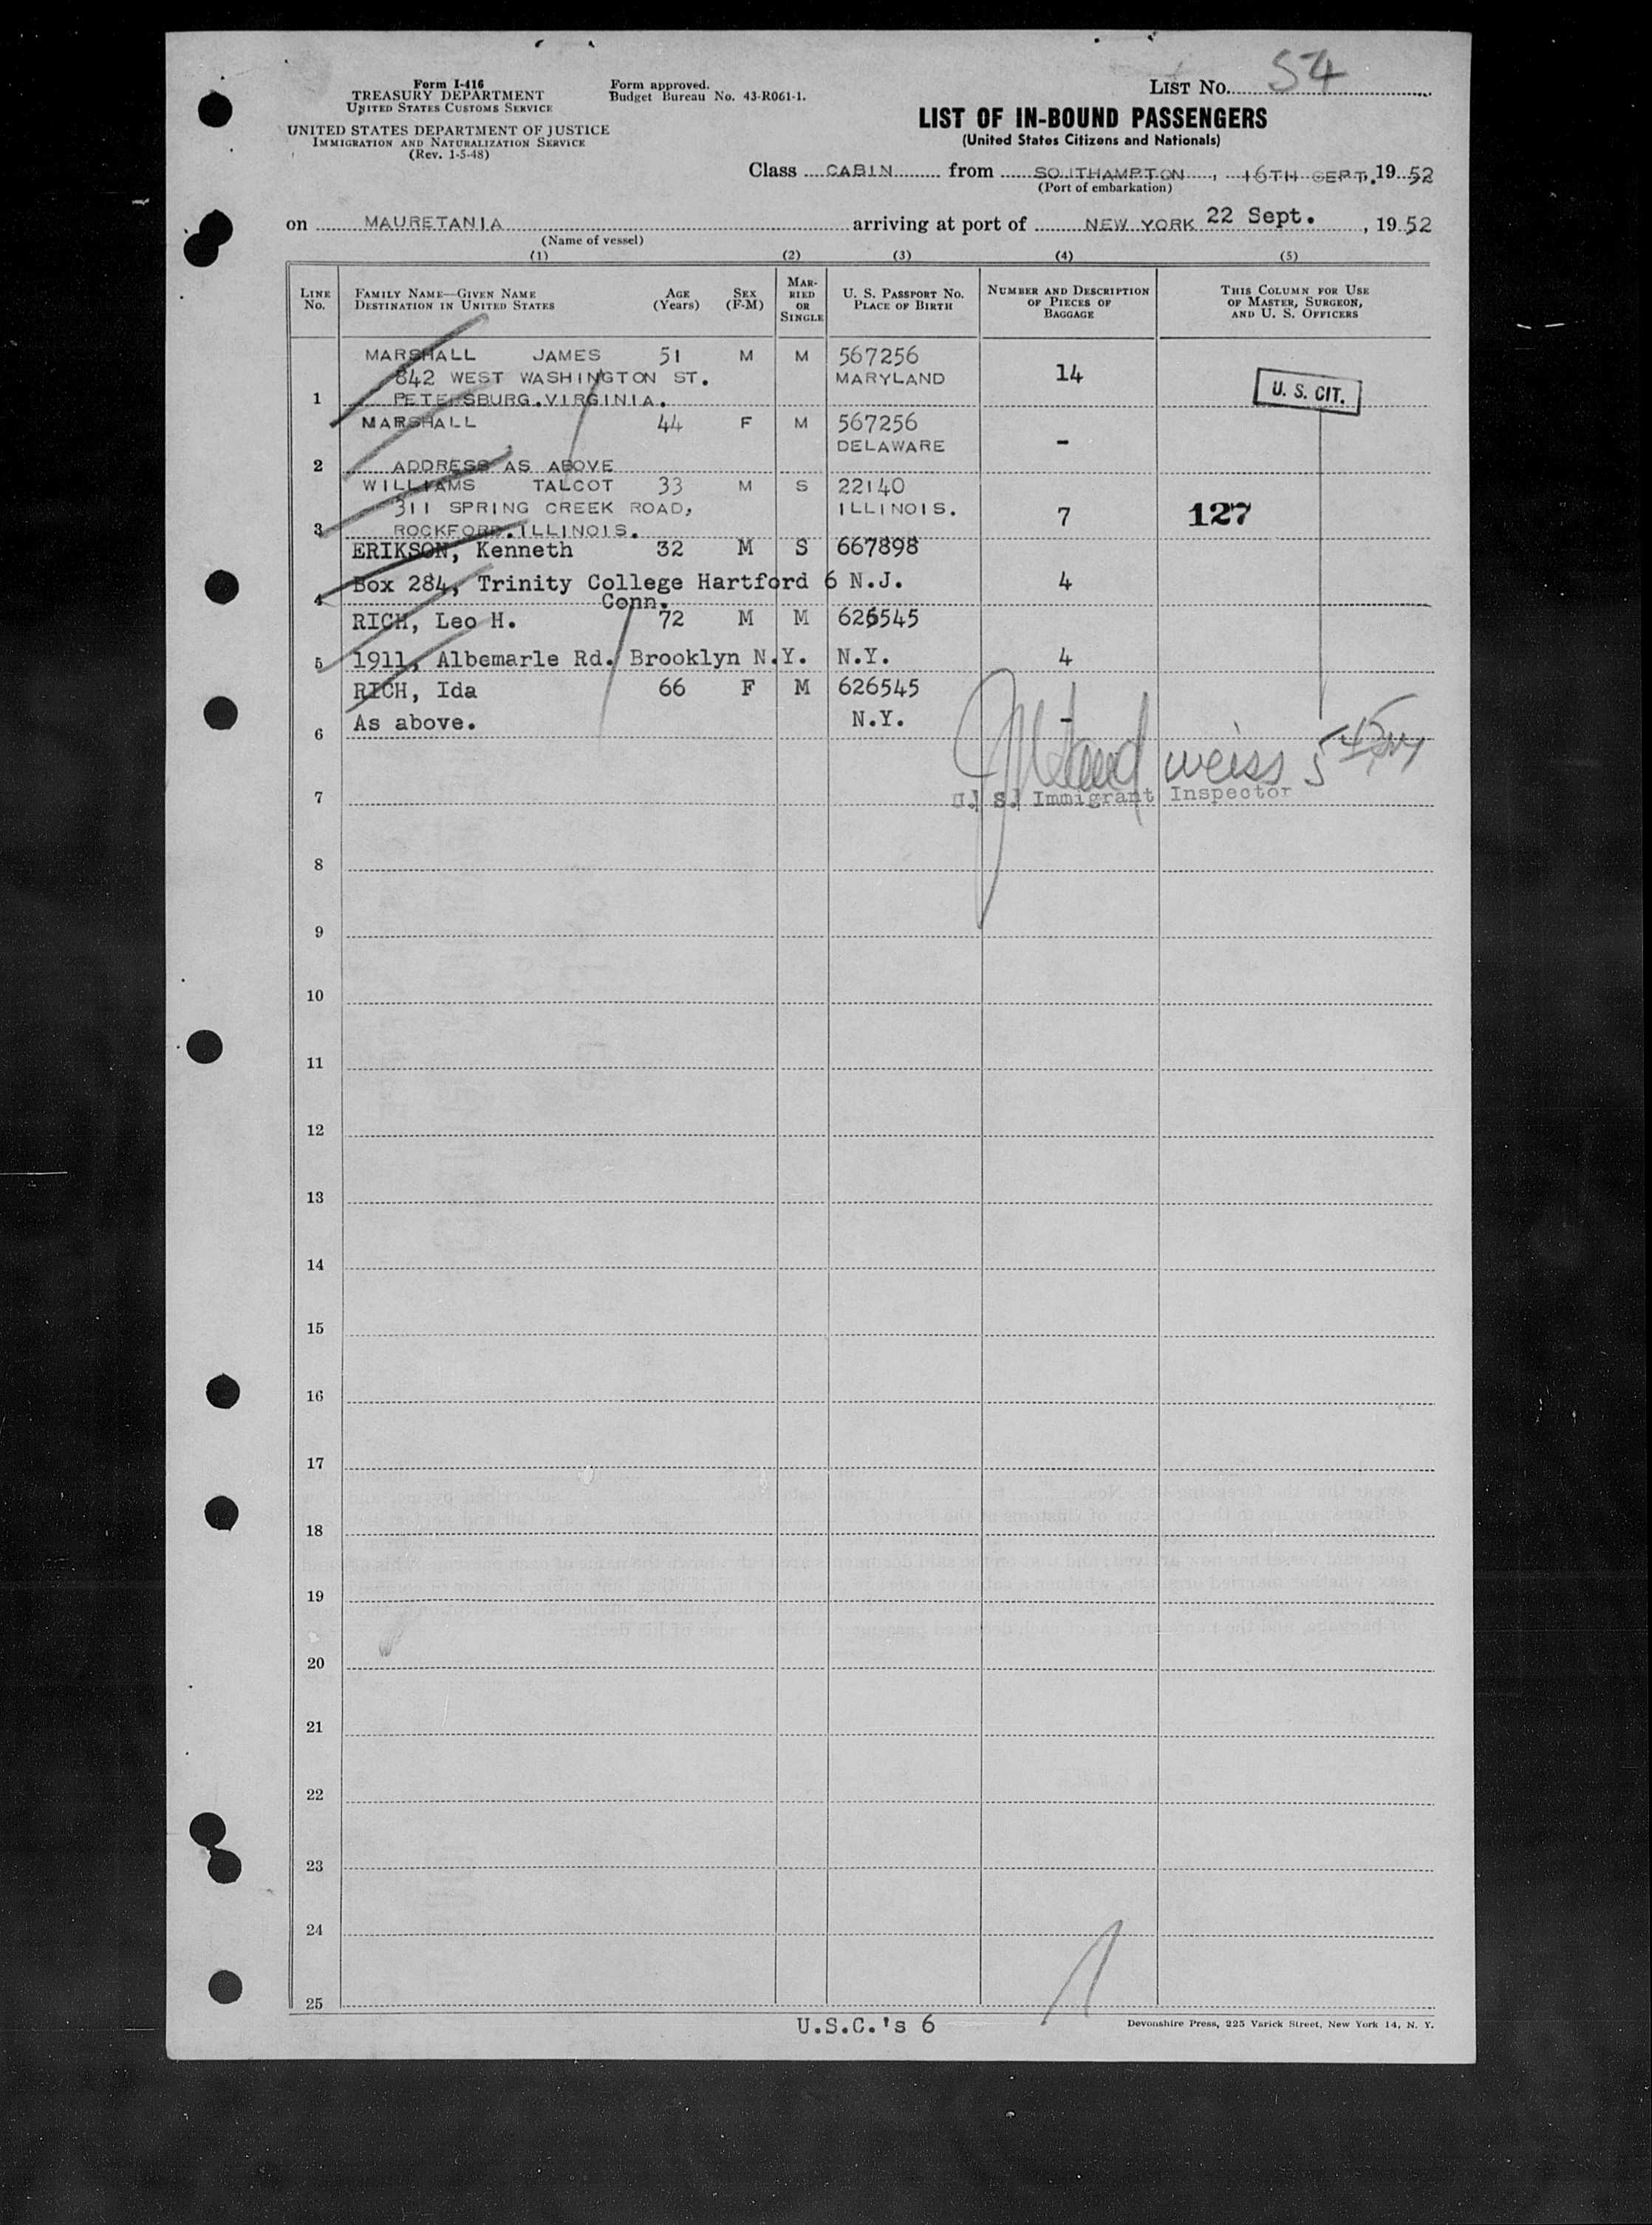 Form I-416
TREASURY DEPARTMENT
UNITED STATES CUSTOMS SERVICE
UNITED STATES DEPARTMENT OF JUSTICE
IMMIGRATION AND NATURALIZATION SERVICE
(Rev. 1-5-48)
Form approved.
Budget Bureau No. 43-R061-1.
LIST No. 54
LIST OF IN-BOUND PASSENGERS
(United States Citizens and Nationals)
Class CABIN from SOUTHAMPTON, 16TH SEPT., 19 52
(Port of embarkation)
on MAURETANIA arriving at port of NEW YORK 22 Sept., 19 52
(Name of vessel)
(1) (2) (3) (4) (5)
LINE No. FAMILY NAME—GIVEN NAME DESTINATION IN UNITED STATES AGE (Years) SEX (F-M) MARRIED OR SINGLE U. S. PASSPORT No. PLACE OF BIRTH NUMBER AND DESCRIPTION OF PIECES OF BAGGAGE THIS COLUMN FOR USE OF MASTER, SURGEON, AND U. S. OFFICERS
MARSHALL JAMES 51 M M 567256
842 WEST WASHINGTON ST. MARYLAND 14 U. S. CIT.
1 PETERSBURG.VIRGINIA.
MARSHALL 44 F M 567256
DELAWARE -
2 ADDRESS AS ABOVE
WILLIAMS TALCOT 33 M S 22140
311 SPRING CREEK ROAD, ILLINOIS. 7 127
3 ROCKFORD.ILLINOIS.
ERIKSON, Kenneth 32 M S 667898
Box 284, Trinity College Hartford 6 N.J. 4
4 Conn.
RICH, Leo H. 72 M M 626545
5 1911, Albemarle Rd. Brooklyn N.Y. N.Y. 4
RICH, Ida 66 F M 626545
As above. N.Y. -
6
weiss
7 U. S. Immigrant Inspector
8
9
10
11
12
13
14
15
16
17
18
19
20
21
22
23
24
25
U.S.C.'s 6
Devonshire Press, 225 Varick Street, New York 14, N. Y.